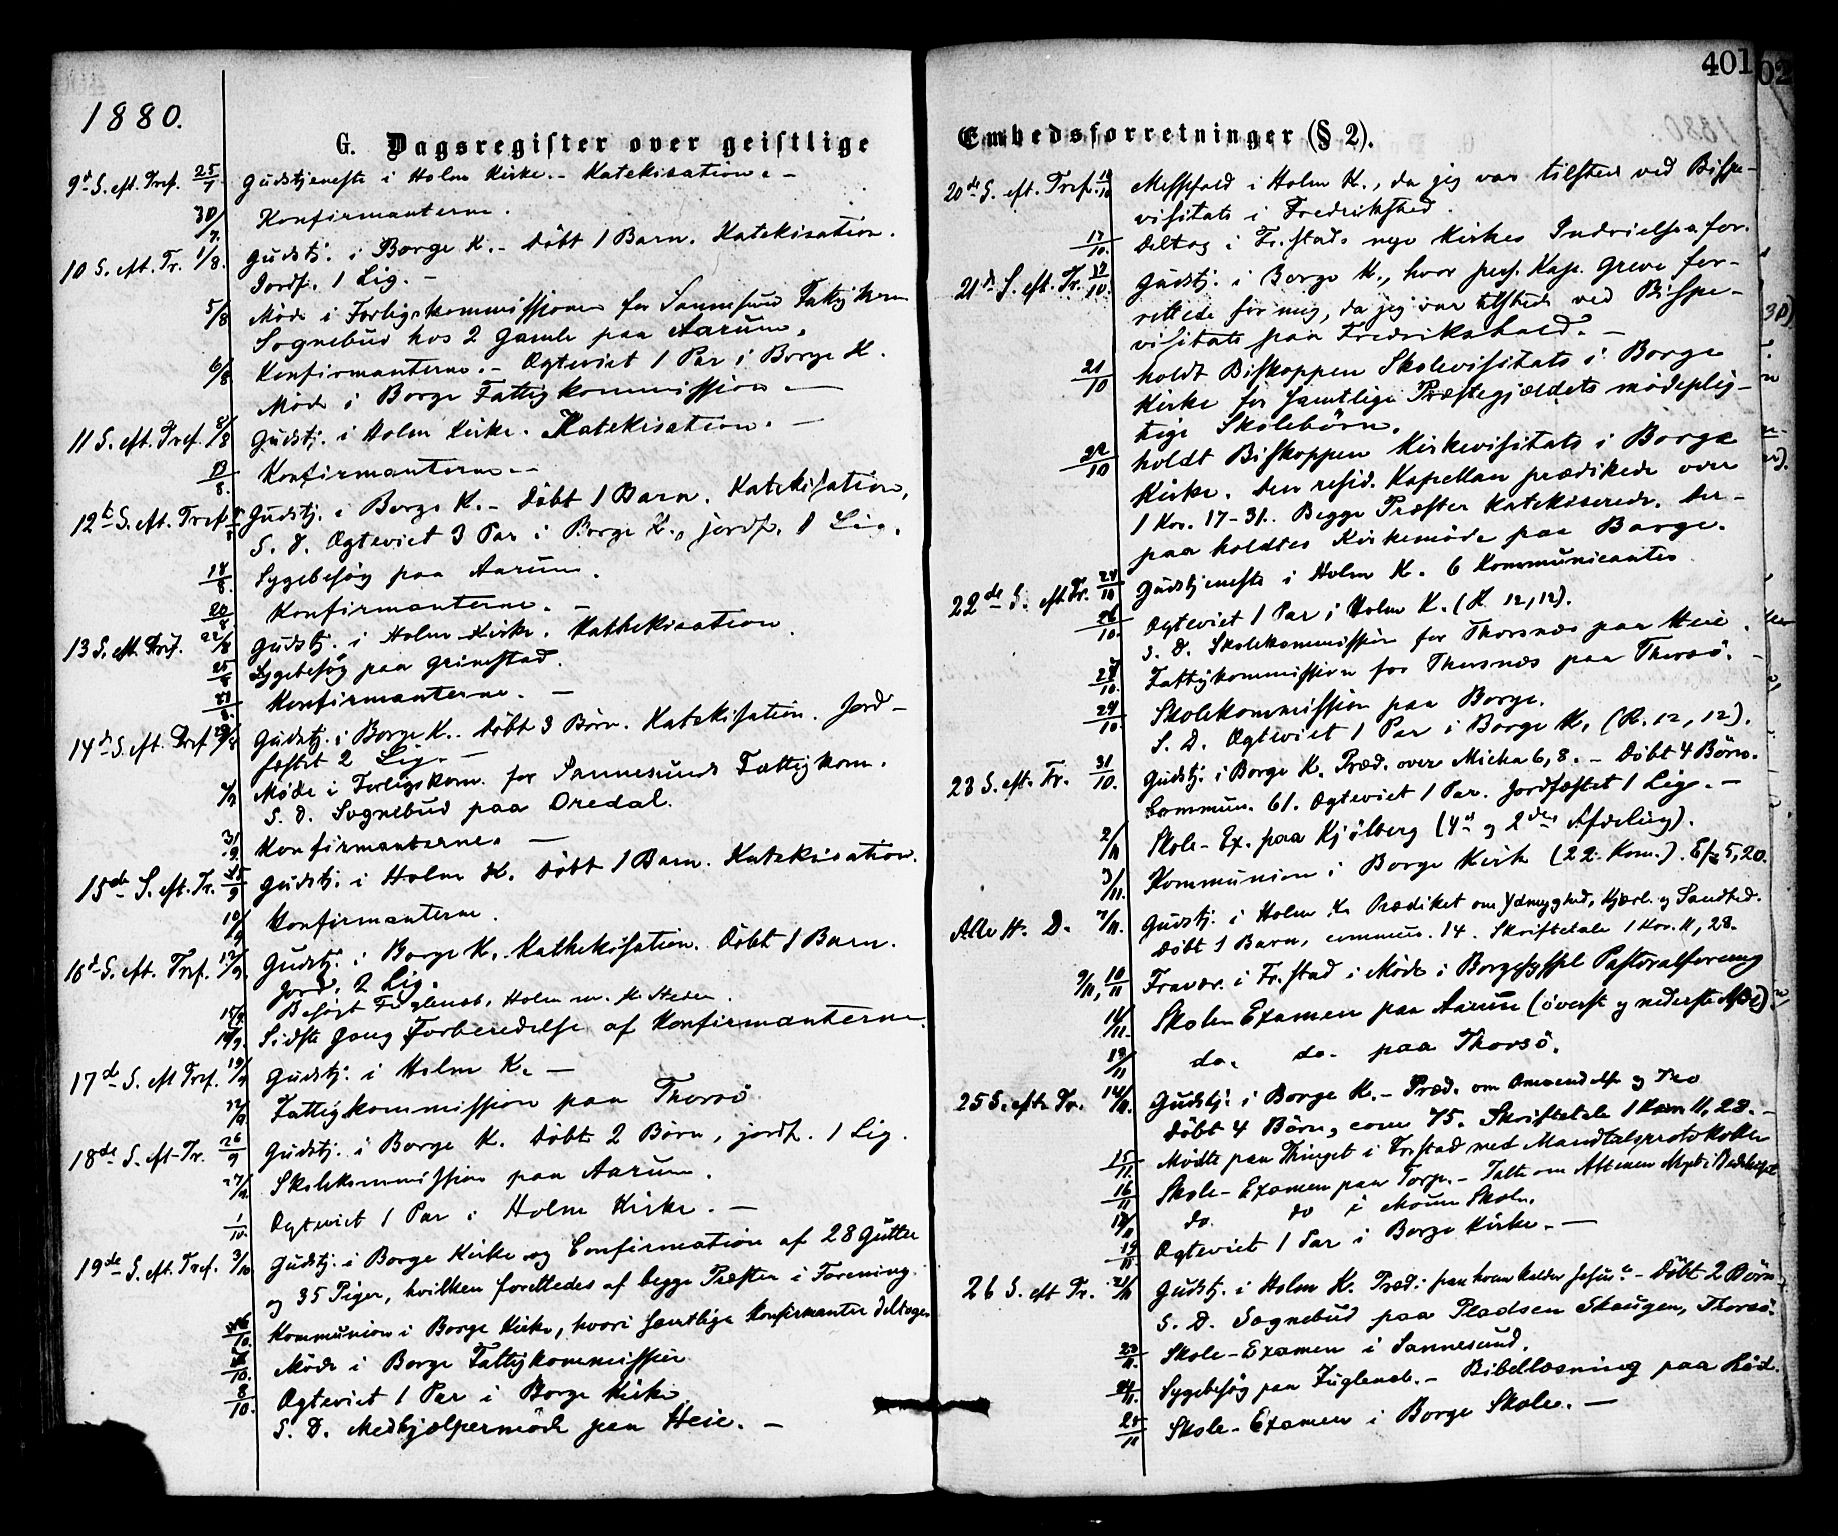 1880.
G. Dagsregister over geistlige
9d S. eft. Tref. 25/7 Gudstjeneste i Holm Kirke. - Katekisation. -
30/7. Konfirmanterne.
10 S. eft. Tr. 1/8. Gudstj. i Borge K. - Döbt 1 Barn. Katekisation.
Jordf. 1 Lig. -
5/8 Möde i Forligskommissionen for Sannesund Fattigkom
Sognebud hos 2 Gamle paa Aarum.
6/8 Konfirmanterne. - Ægteviet 1 Par i Borge K.
Möde i Borge Fattigkommission. -
11 S. eft. Tref. 8/8 Gudstj. i Holm Kirke. Katekisation. -
13/8. Konfirmanterne. -
12te S. eft. Tref. Gudstj. i Borge K. - Döbt 1 Barn. Katekisation,
S. D. Ægteviet 3 Par i Borge K., jordf. 1 Lig.
18/8 Sygebesög paa Aarum.
20/8 Konfirmanterne. -
13 S. eft. Tref. 22/8 Gudstj. i Holm Kirke. Kathekisation.
25/8 Sygebesög paa Grimstad.
Konfirmanterne. -
14d S. eft. Tref. 29/8 Gudstj. i Borge K. Döbt 3 Börn. Katekisation. Jord-
festet 2 Lig. -
2/9 Möde i Forligskom. for Sannesunds Fattigkom.
S. D. Sognebud paa Oredal.
3/9. Konfirmanterne. -
15de S. eft. Tr. 5/9 Gudstj. i Holm K. Döbt 1 Barn. Katekisation.
10/9 Konfirmanterne.
16d S. eft. Tref. 12/9. Gudstj. i Borge K. Kathekisation. Döbt 1 Barn.
Jord. 2 Lig.
15/9. Besögt Fuglevik, Holm
Sidste Gang Forberedelse af Konfirmanterne.
17de S. eft Tref. 19/9 Gudstj. i Holm K. -
22/9 Fattigkommission paa Thorsö
18de S. eft Tr. 26/9 Gudstj. i Borge K. Döbt 2 Börn, jordf. 1 Lig.
27/9. Skolekommission paa Aarum.
1/10. Ægteviet 1 Par i Holm Kirke. -
19de S. eft. Tref. 3/10 Gudstj. i Borge Kirke og Confirmation af 28 Gutter
og 35 Piger, hvilken forrettedes af begge Præster i Forening.
Kommunion i Borge Kirke, hvori samtlige Konfirmanter deltoge
Möde i Borge Fattigkommission
8/10. Ægteviet 1 Par i Borge Kirke
S. D. Medhjælpermöde paa Heie. -
401
02
Embedsforretninger (§ 2).
20de S. eft. Tref. 10/10 Messefald i Holm K., da jeg var tilsted ved Bispe-
visitats i Fredrikstad.
Deltog i Fr.stads nye Kirkes Indvielse, for.
21d S. eft. Tr. 17/10. Gudstj. i Borge K., hvor pers. Kap. Greve for-
rettede for mig, da jeg var tilstede ved Bispe-
visitats paa Fredrikshald. -
21/10 holdt Biskoppen Skolevisitats i Borge
Kirke for samtlige Præstegjældets mödeplig-
tige Skolebörn.
22/10 holdt Biskoppen Kirkevisitats i Borge
Kirke. Den resid. Kapellan prædikede over
1 Kor. 17-31. Begge Præster katekiserede. Der-
paa holdtes Kirkemöde paa Borge.
22de S. eft Tr. 24/10 Gudstjeneste i Holm K. 6 Kommunicanter
26/10. Ægteviet 1 Par i Holm K. (R. 12, 12).
S. D. Skolekommission for Thorsnæs paa Heie.
Fattigkommission for Thorsnæs paa Thorsö. -
29/10 Skolekommission paa Borge.
S. D. Ægteviet 1 Par i Borge K. (R. 12, 12).
23 S. eft. Tr. 31/10. Gudstj. i Borge K. Præd. over Micha 6, 8. - Döbt 4 Börn.
Commun. 61. Ægteviet 1 Par. Jordfæstet 1 Lig. -
2/11 Skole-Ex. paa Kjölberg (4de og 2den Afdeling).
3/11. Kommunion i Borge Kirke (22 Kom.). Ef. 5, 20.
Alle H. D. 7/11. Gudstj. i Holm K. Prædiket om Ydmyghed, Kjærl. og Sandhed.
Döbt 1 Barn, commun. 14. Skriftetale 1 Kor. 11, 28.
9/11, 10/11 Fravær. i Fr.stad i Möde i Borgesyssel Pastoralforening
Skole-Examen paa Aarum (överste og nederste Afd.).
do. do. paa Thorsö.
25 S. eft. Tr. 14/11. Gudstj. i Borge K. - Præd. om Omvendelse og Tro
Döbt 4 Börn, com 75. Skriftetale 1 Kor 11, 28. -
15/11. Mödte paa Thinget i Fr.stad med Mandtalsprotokollen
16/11 Skole-Examen paa Torp. - Talte om i Bedehuset
do. do i Moum Skole.
19/11 Ægteviet 1 Par i Borge Kirke. -
26 S. eft Tr. 21/11 Gudstj. i Holm K. Præd. paa hvem kalder Jesus - Döbt 2 Börn.
S. D. Sognebud paa Pladsen Skaugen, Thorsö.
23/11. Skole-Examen i Sannesund.
24/11. Sygebesög paa Fuglevik. - Bibellæsning paa Röd.
Skole-Examen i Borge Skole. -